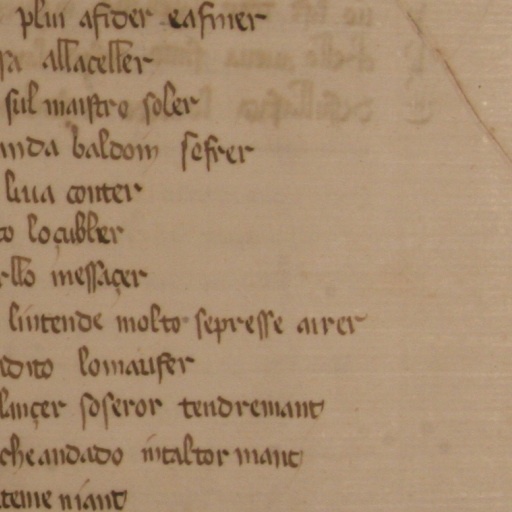 plui afider easiner
ra allaceller
sul maistro soler
anda baldom sefrer
liua conter
to loçubler
rllo messaçer
lintende molto sepresse airer
ndito lomaufer
lançer soseror tendremant
cheandado intaltor mant
teme niant